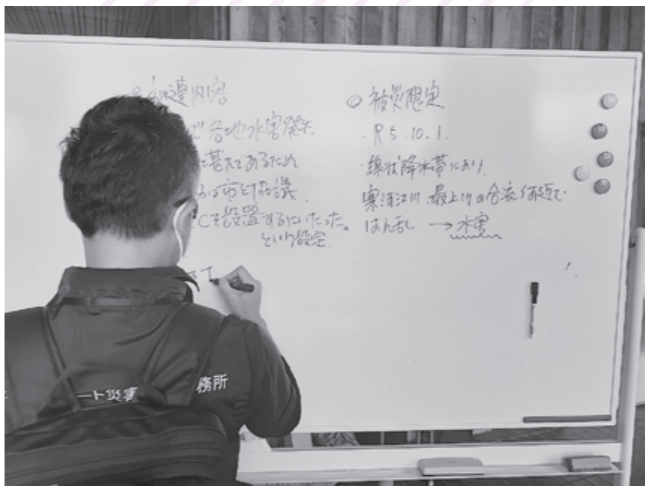 訓連内容
で各地水害発生
甚大であるため
は市と協議
Cを設置するにいたった。
という設定
◎ 被災想定
・R5.10.1.
・線状降水帯により、
寒河江川 最上川の合流 付近で
はん乱 → 水害
ート災害
務所